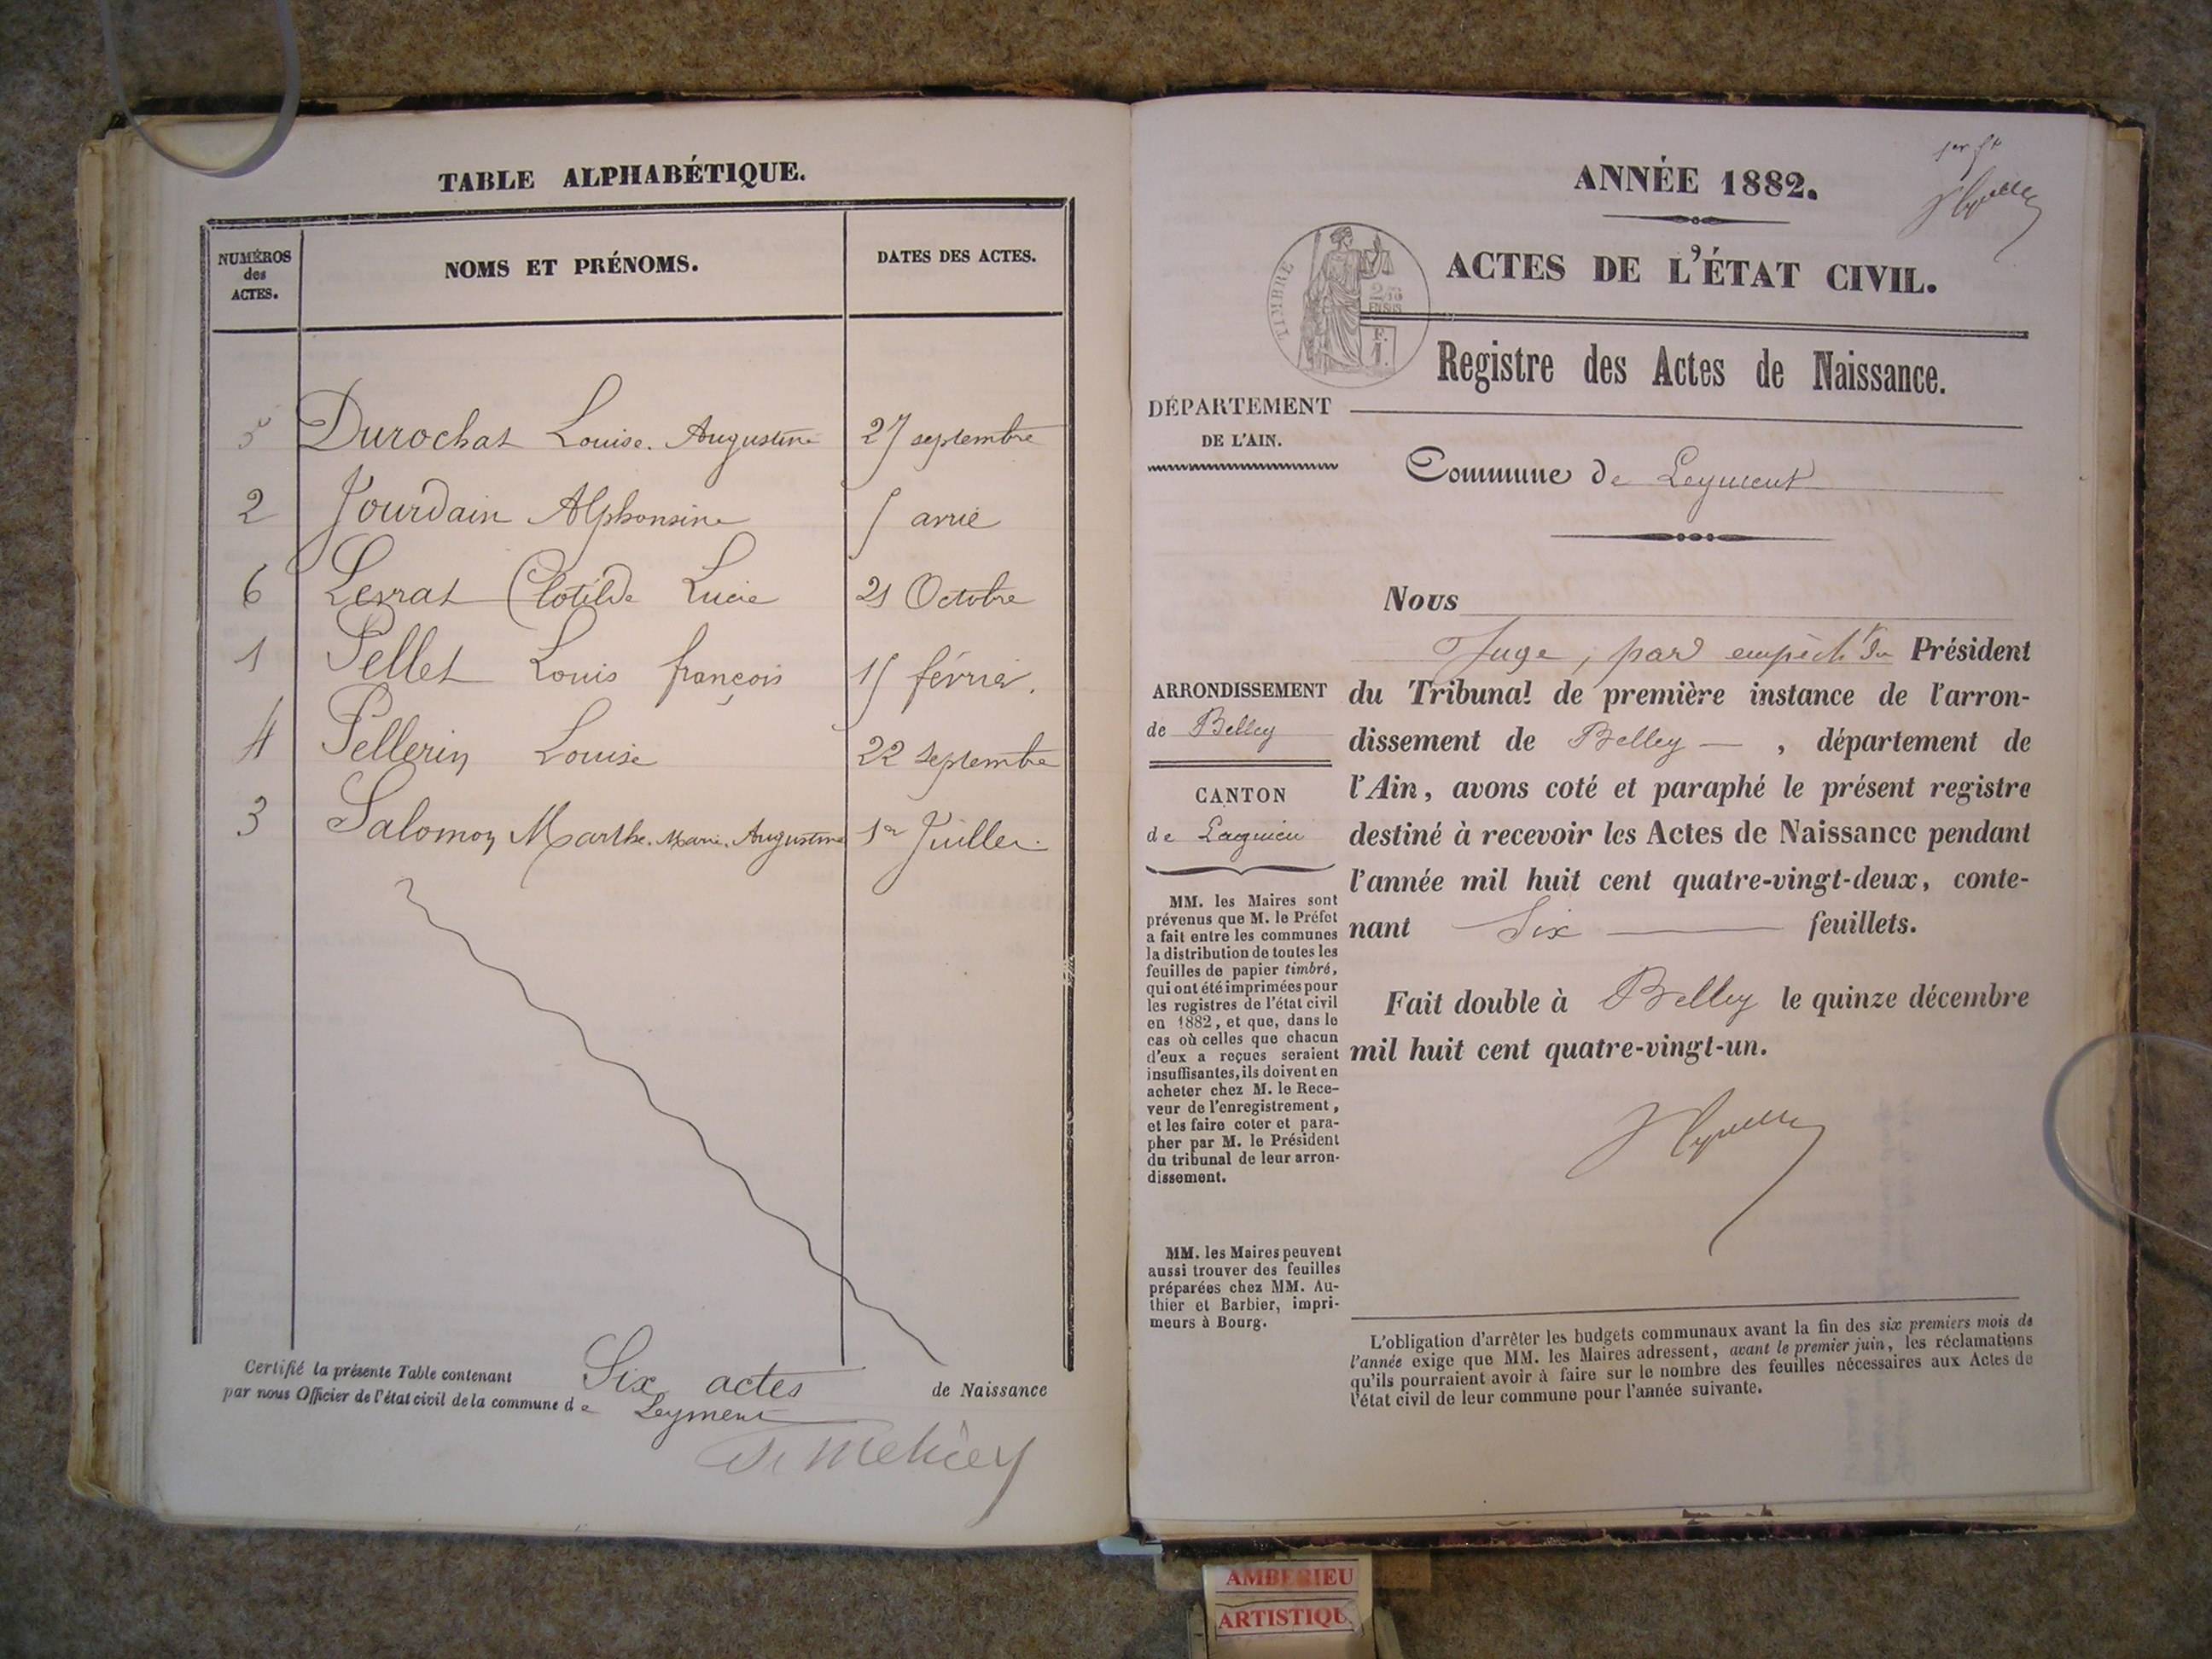 TABLE ALPHABÉTIQUE.
NUMÉROS des ACTES.
NOMS ET PRÉNOMS.
DATES DES ACTES.
5 Durochat Louise. Augustine 27 septembre
2 Jourdain Alphonsine 5 avril
6 Levrat Clotilde Lucie 21 Octobre
1 Pellet Louis françois 15 février.
4 Pellerin Louise 22 septembre
3 Salomon Marthe. Marie. Augustine 1er Juillet
Certifié la présente Table contenant Six actes de Naissance
par nous Officier de l'état civil de la commune de Leyment
1er ft
ANNÉE 1882.
TIMBRE
2/10
EN SUS
F.
1.
ACTES DE L'ÉTAT CIVIL.
Registre des Actes de Naissance.
DÉPARTEMENT
DE L'AIN.
Commune de Leyment
ARRONDISSEMENT
de Belley
CANTON
de Lagnieu
MM. les Maires sont
prévenus que M. le Préfet
a fait entre les communes
la distribution de toutes les
feuilles de papier timbré,
qui ont été imprimées pour
les registres de l'état civil
en 1882, et que, dans le
cas où celles que chacun
d'eux a reçues seraient
insuffisantes, ils doivent en
acheter chez M. le Rece-
veur de l'enregistrement,
et les faire coter et para-
pher par M. le Président
du tribunal de leur arron-
dissement.
MM. les Maires peuvent
aussi trouver des feuilles
préparées chez MM. Au-
thier et Barbier, impri-
meurs à Bourg.
Nous
Juge, par empêcht du Président
du Tribunal de première instance de l'arron-
dissement de Belley — , département de
l'Ain, avons coté et paraphé le présent registre
destiné à recevoir les Actes de Naissance pendant
l'année mil huit cent quatre-vingt-deux, conte-
nant Six — feuillets.
Fait double à Belley le quinze décembre
mil huit cent quatre-vingt-un.
L'obligation d'arrêter les budgets communaux avant la fin des six premiers mois de
l'année exige que MM. les Maires adressent, avant le premier juin, les réclamations
qu'ils pourraient avoir à faire sur le nombre des feuilles nécessaires aux Actes de
l'état civil de leur commune pour l'année suivante.
AMBERIEU
ARTISTIQU